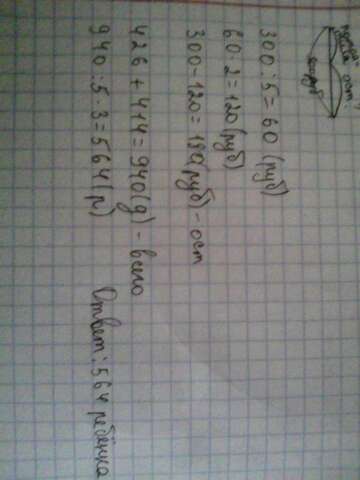 ост.
300руб
300:5=60 (руб)
60·2=120(руб)
300-120=180(руб) - ост
426+414=940(д) - всего
940:5·3=564(р) Ответ: 564 ребёнка